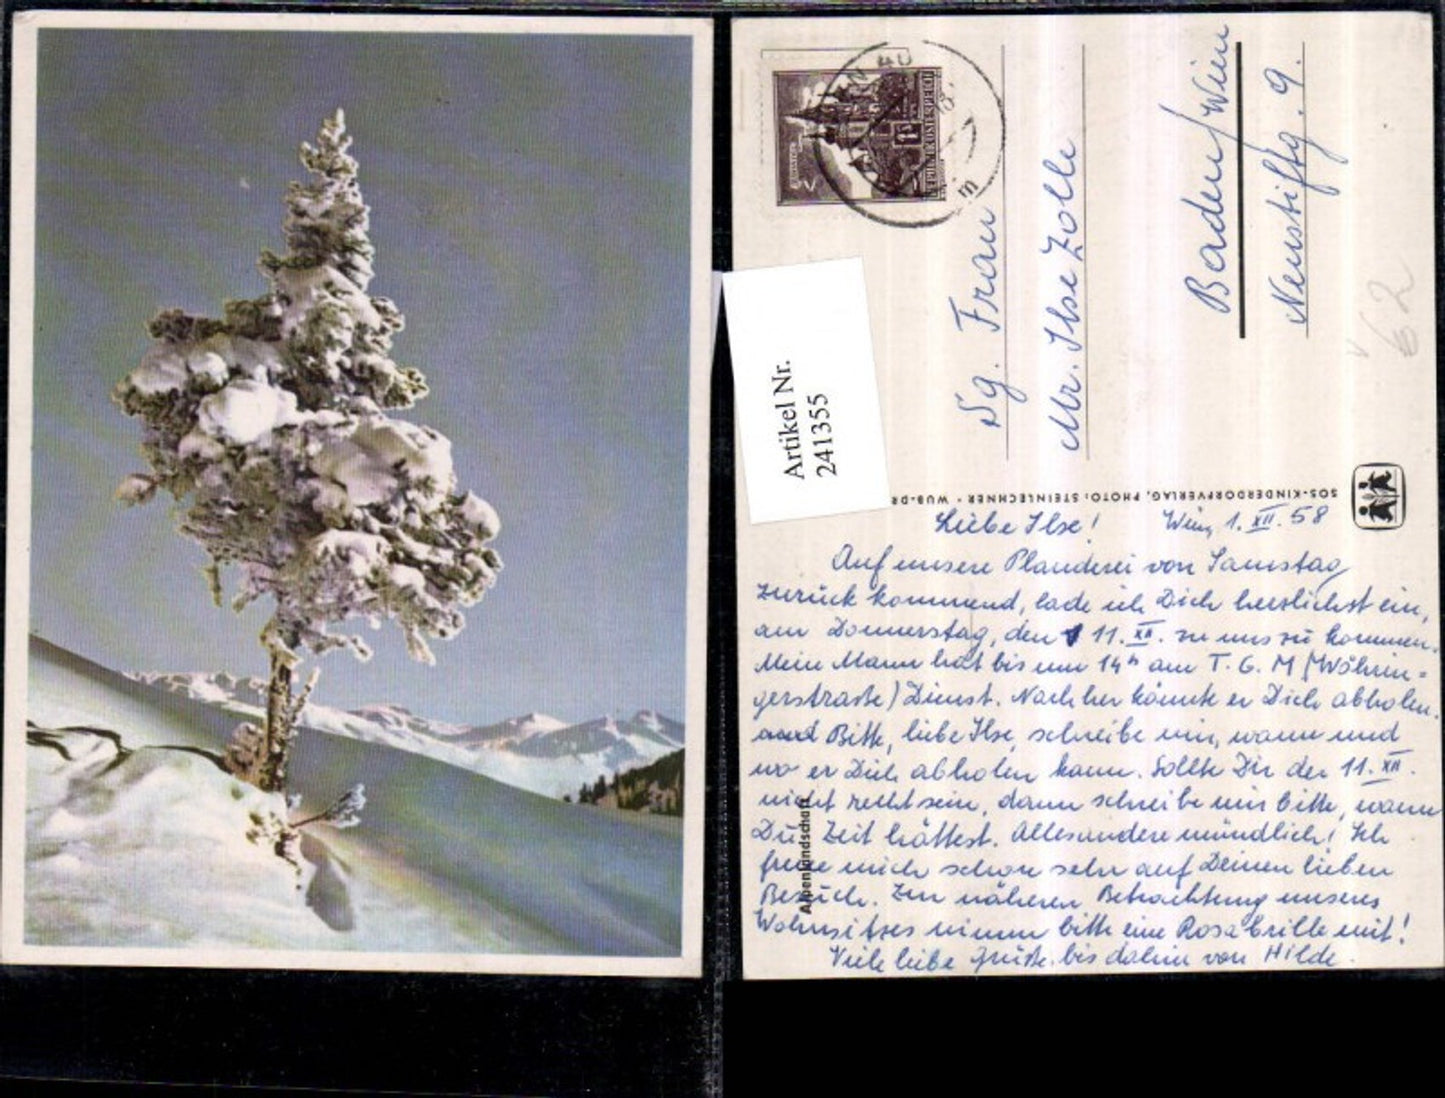 REPUBLIK ÖSTERREICH
Sg. Frau
Mr. Ilse Zolle
Baden/Wien
Neustiftg. 9.
62
Artikel Nr.
241355
SOS-KINDERDORFVERLAG, PHOTO: STEINLECHNER - WUB-DR
Alpenlandschaft
Liebe Ilse! Wien, 1. XII. 58
Auf unsere Plauderei von Samstag
zurück kommend, lade ich Dich herzlichst ein,
am Donnerstag, den 11. XII. zu uns zu kommen.
Mein Mann hat bis um 14h am T. G. M (Währin=
gerstraße) Dienst. Nachher könnte er Dich abholen.
Bitte, liebe Ilse, schreibe mir, wann und
wo er Dich abholen kann. Sollte Dir der 11. XII.
nicht recht sein, dann schreibe mir bitte, wann
Du Zeit hättest. Alles andere mündlich! Ich
freue mich schon sehr auf Deinen lieben
Besuch. Zur näheren Betrachtung unseres
Wohnsitzes nimm bitte eine Rosabrille mit!
Viele liebe Grüße bis dahin von Hilde.